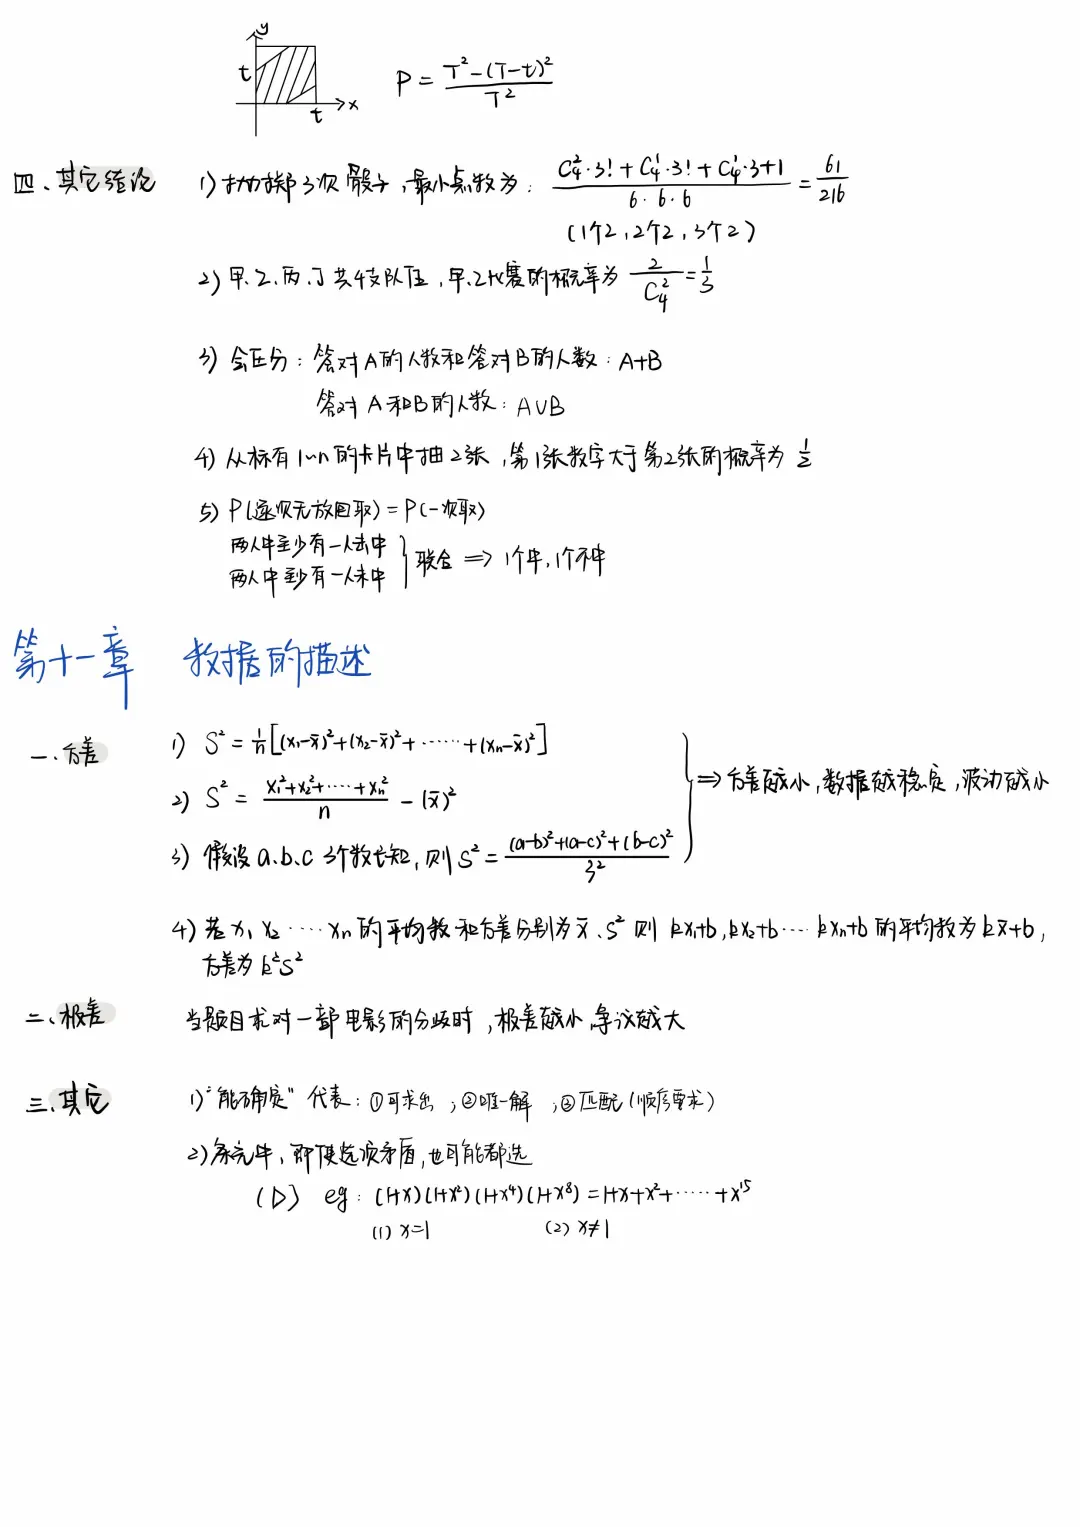 y
t
t
x
P = (T²-(T-t)²)/T²
四、其它结论
1) 抛掷3次骰子,最小点数为: (C₄²·3!+C₄¹·3!+C₄¹·3+1)/(6·6·6) = 61/216
(1个2,2个2,3个2)
2) 甲、乙、丙、丁共4支队伍,甲、乙比赛的概率为 2/C₄² = 1/3
3) 会区分: 答对A的人数和答对B的人数: A+B
答对A和B的人数: A∪B
4) 从标有1~n的卡片中抽2张,第1张数字大于第2张的概率为 1/2
5) P(逐次无放回取)=P(一次取)
两人中至少有一人击中
两人中至少有一人未中
联合 ⇒ 1个中,1个不中
第十一章 数据的描述
一、方差
1) S² = 1/n[(x₁-x̄)²+(x₂-x̄)²+……+(xₙ-x̄)²]
2) S² = (x₁²+x₂²+…+xₙ²)/n - (x̄)²
3) 假设a.b.c 3个数已知,则S² = ((a-b)²+(a-c)²+(b-c)²)/3²
⇒ 方差越小,数据越稳定,波动越小
4) 若x₁ x₂ … xₙ的平均数和方差分别为x̄、S² 则 kx₁+b,kx₂+b…kxₙ+b的平均数为kx̄+b,
方差为k²S²
二、极差
当题目求对一部电影的分歧时,极差越小,争议越大
三、其它
1)“能确定”代表: ①可求出 ;②唯一解 ;③匹配(顺序要求)
2)条充中、即使选项矛盾,也可能都选
(D) eg: (1+x)(1+x²)(1+x⁴)(1+x⁸)=1+x+x²+……+x¹⁵
(1) x=1 (2) x≠1